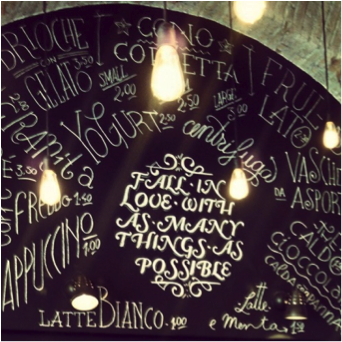 BRIOCHE
CON 3.50
GELATO
CONO
COPPETTA
SMALL
2.00
2.50
LARGE
3.00
FRUL
LATO
YOGURT 2.50
centrifuga
E 3.50
FREDDO 1.40
CAPPUCCINO 1.00
FALL · IN
LOVE · WITH
AS · MANY
THINGS · AS
POSSIBLE
VASCHE
DA ASPOR
CALDO
CIOCCOLA
CALDA
PANNA
LATTE BIANCO · 1.00
Latte
e Menta · 1.00